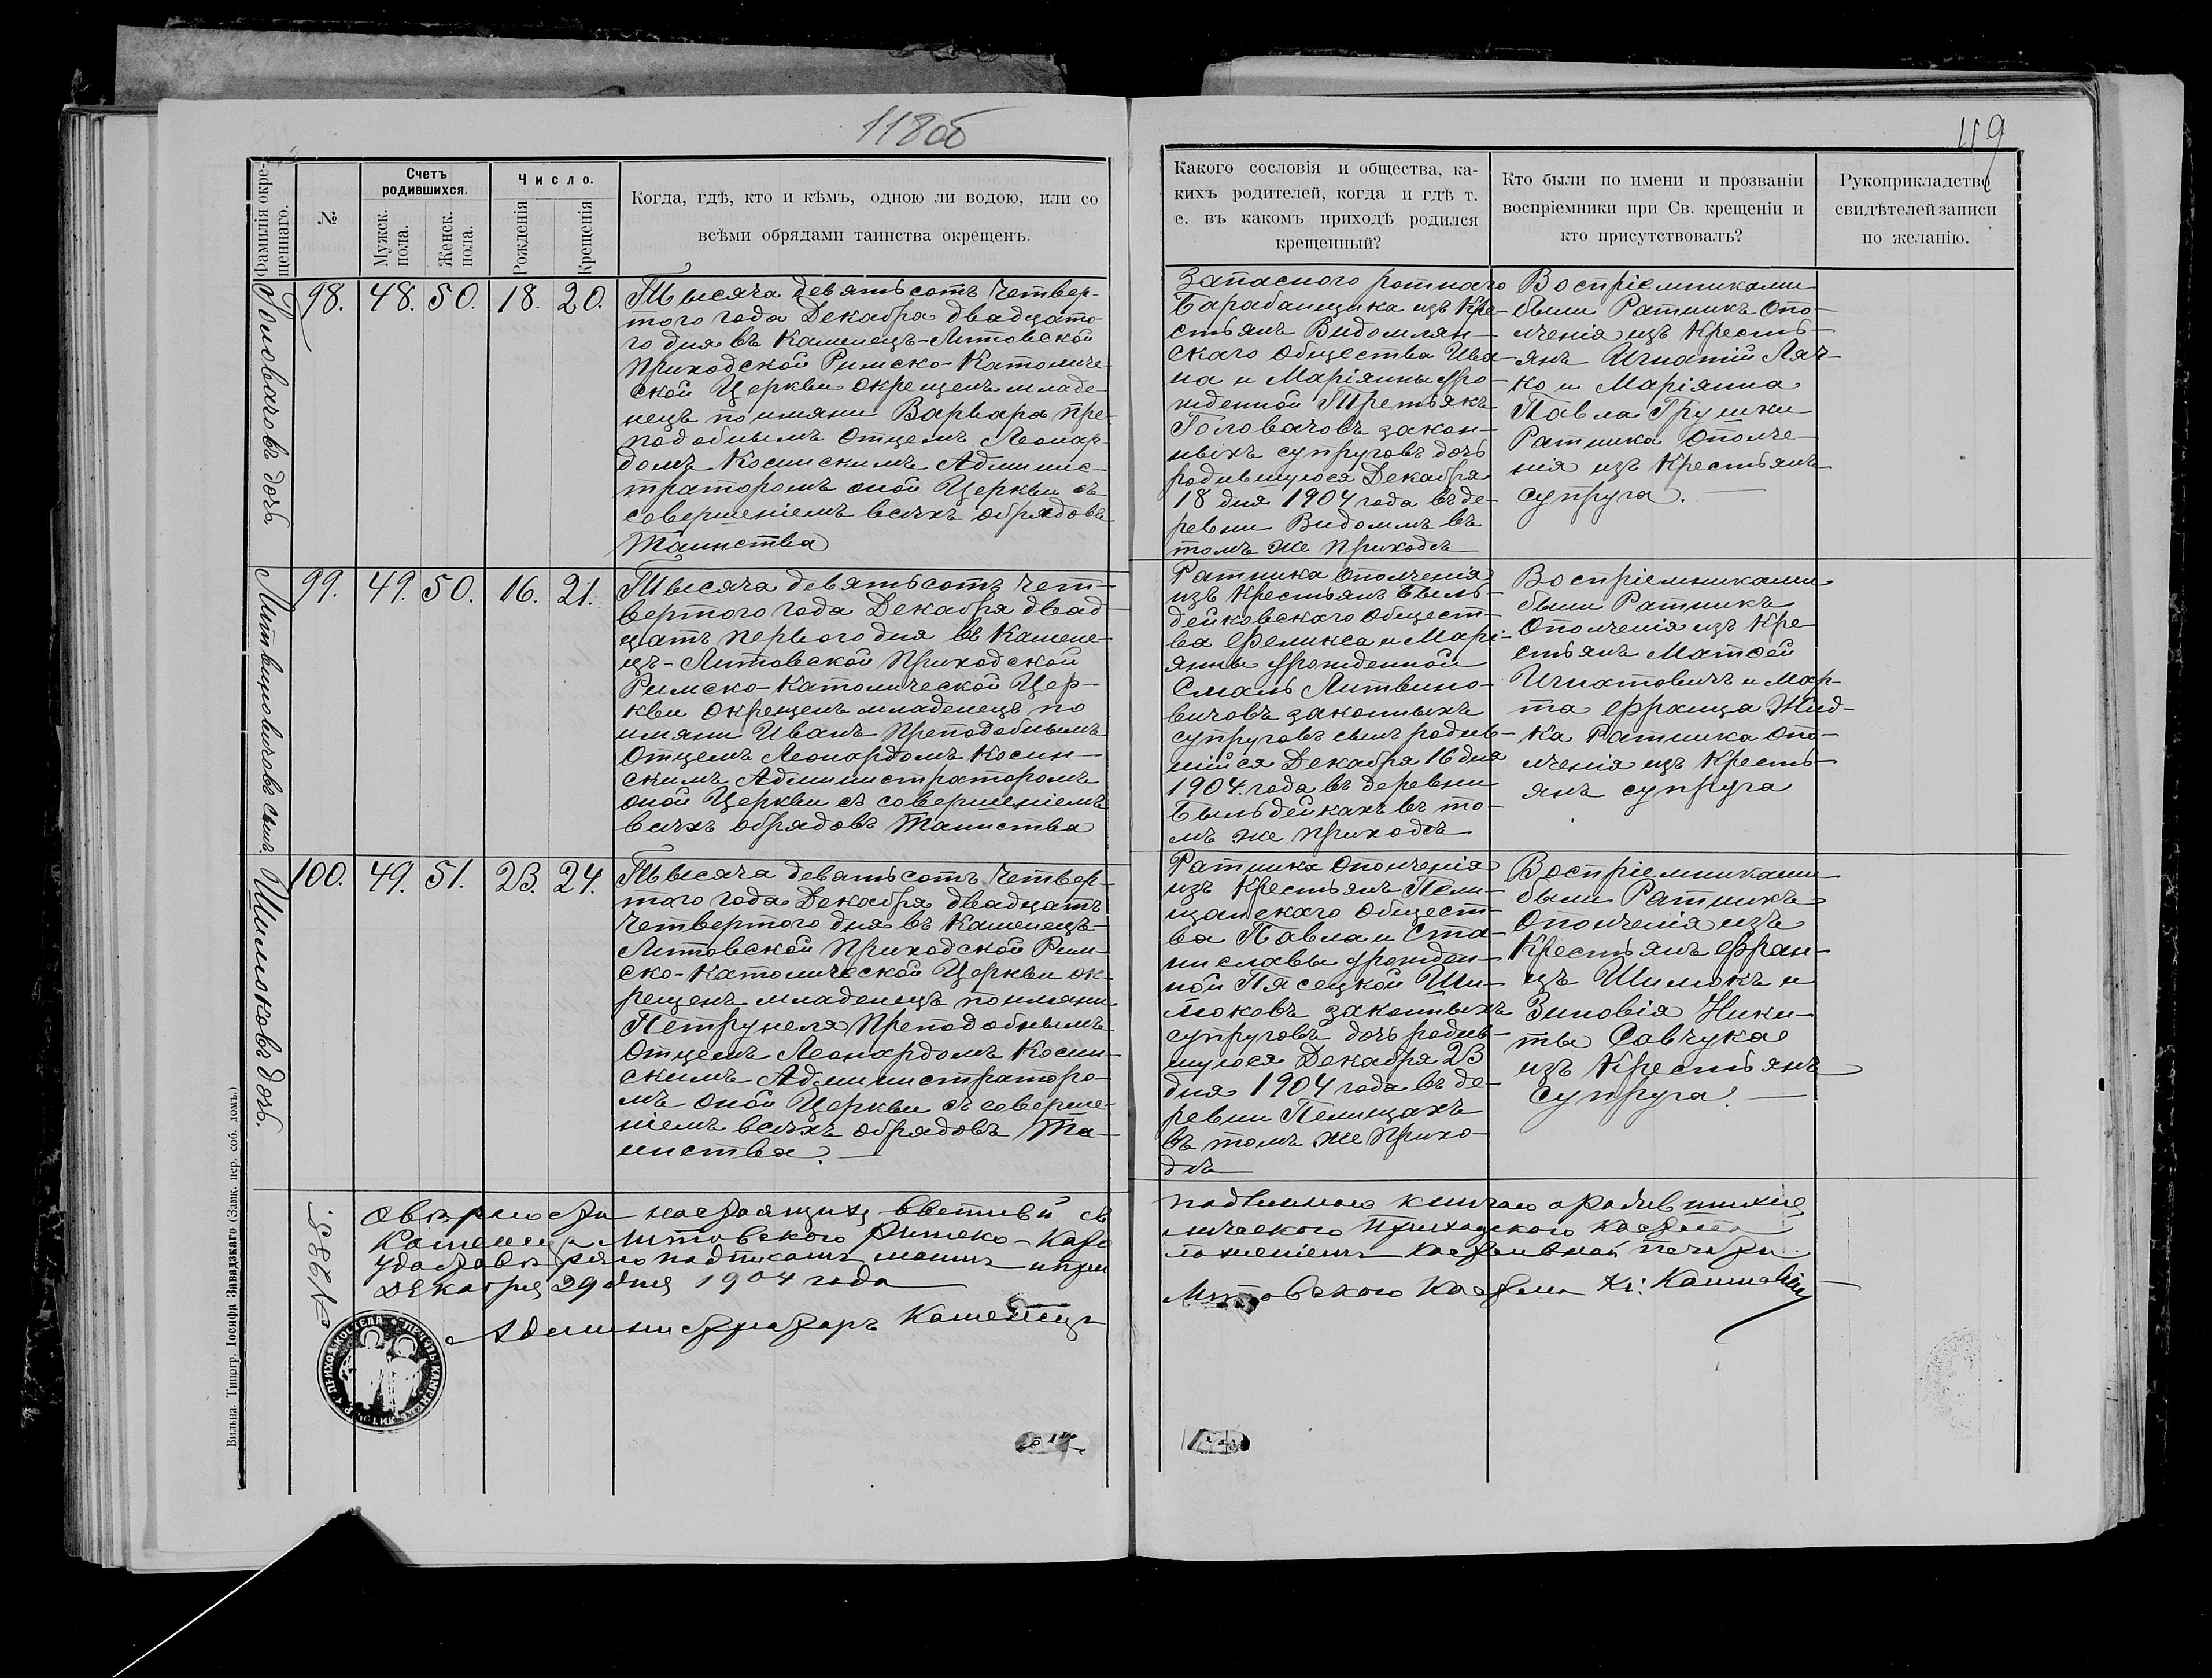 118об
119
Фамилія окре-
щеннаго.
№
Счетъ
родившихся.
Мужск.
пола.
Женск.
пола.
Число.
Рожденія
Крещенія
Когда, гдѣ, кто и кѣмъ, одною ли водою, или со
всѣми обрядами таинства окрещенъ.
Какого сословія и общества, ка-
кихъ родителей, когда и гдѣ т.
е. въ какомъ приходѣ родился
крещенный?
Кто были по имени и прозваніи
воспріемники при Св. крещеніи и
кто присутствовалъ?
Рукоприкладство
свидѣтелей записи
по желанію.
Головачовъ дочь.
98. 48. 50. 18. 20.
Тысяча девятьсотъ четвер-
того года Декабря двадцато-
го дня въ Каменецъ-Литовской
Приходской Римско-Католиче-
ской Церкви окрещенъ младе-
нецъ по имяни Варвара Пре-
подобнымъ Отцемъ Леонар-
домъ Косинскимъ Админис-
траторомъ оной Церкви съ
совершеніемъ всѣхъ обрядовъ
Таинства
Запаснаго ротнаго
Барабанщика изъ Кре-
стьянъ Видомлян-
скаго Общества Ива-
на и Маріянны уро-
жденной Третьякъ
Головачовъ закон-
ныхъ супруговъ дочь
родившуюся Декабря
18 дня 1904 года въ де-
ревни Видомлѣ въ
томъ же приходѣ
Воспріемниками
были Ратникъ Опо-
лченія изъ Кресть-
янъ Игнатій Ляч-
ко и Маріянна
Павла Грушки
Ратника Ополче-
нія изъ Крестьянъ
супруга.
Литвиновичовъ сынъ.
99. 49. 50. 16. 21.
Тысяча девятьсотъ чет-
вертого года Декабря двад
цать перваго дня въ Камене-
цъ-Литовской Приходской
Римско-Католической Цер-
кви окрещенъ младенецъ по
имяни Иванъ Преподобнымъ
Отцемъ Леонардомъ Косин-
скимъ Администраторомъ
оной Церкви съ совершеніемъ
всѣхъ обрядовъ Таинства
Ратника Ополченія
изъ Крестьянъ Быль-
дейковскаго Общест-
ва Феликса и Марі-
янны урожденной
Смаль Литвино-
вичовъ законныхъ
супруговъ сынъ родив-
шійся Декабря 16 дня
1904 года въ деревни
Быльдейкахъ въ то-
мъ же приходѣ
Воспріемниками
были Ратникъ
Ополченія изъ Кре
стьянъ Матѳей
Игнатовичъ и Мар-
та Франца Жид-
ка Ратника Опо-
лченія изъ Кресть-
янъ супруга
Шимюковъ дочь.
100. 49. 51. 23. 24.
Тысяча девятьсотъ четвер-
того года Декабря двадцать
четвертого дня въ Каменецъ-
Литовской Приходской Рим-
ско-Католической Церкви ок-
рещенъ младенецъ по имяни
Петрунеля Преподобнымъ
Отцемъ Леонардомъ Косин-
скимъ Администраторо-
мъ оной Церкви съ соверше-
ніемъ всѣхъ обрядовъ Та-
инства.
Ратника Ополченія
изъ Крестьянъ Пели-
щанскаго Общест-
ва Павла и Ста-
ниславы урожден-
ной Пясецкой Ши-
мюковъ законныхъ
супруговъ дочь родив-
шуюся Декабря 23
дня 1904 года въ де-
ревни Пелищахъ
въ томъ же прихо-
дѣ
Воспріемниками
были Ратникъ
Ополченія изъ
Крестьянъ Фран-
цъ Шимюкъ и
Зиновія Ники-
ты Савчука
изъ Крестьянъ
супруга.
№ 233.
О вѣрности настоящих съ подлинною книгою о родившихся
Каменец-Литовского Римско-Като лическаго Приходского Костела
удостовѣряю подписомъ моимъ и при ложеніемъ костельной печати
Декабря 29 дня 1904 года
Администраторъ Каменецъ Литовскаго Костела Кс:
Вильна. Типогр. Іосифа Завадзкаго (Замк. пер. соб. домъ.)